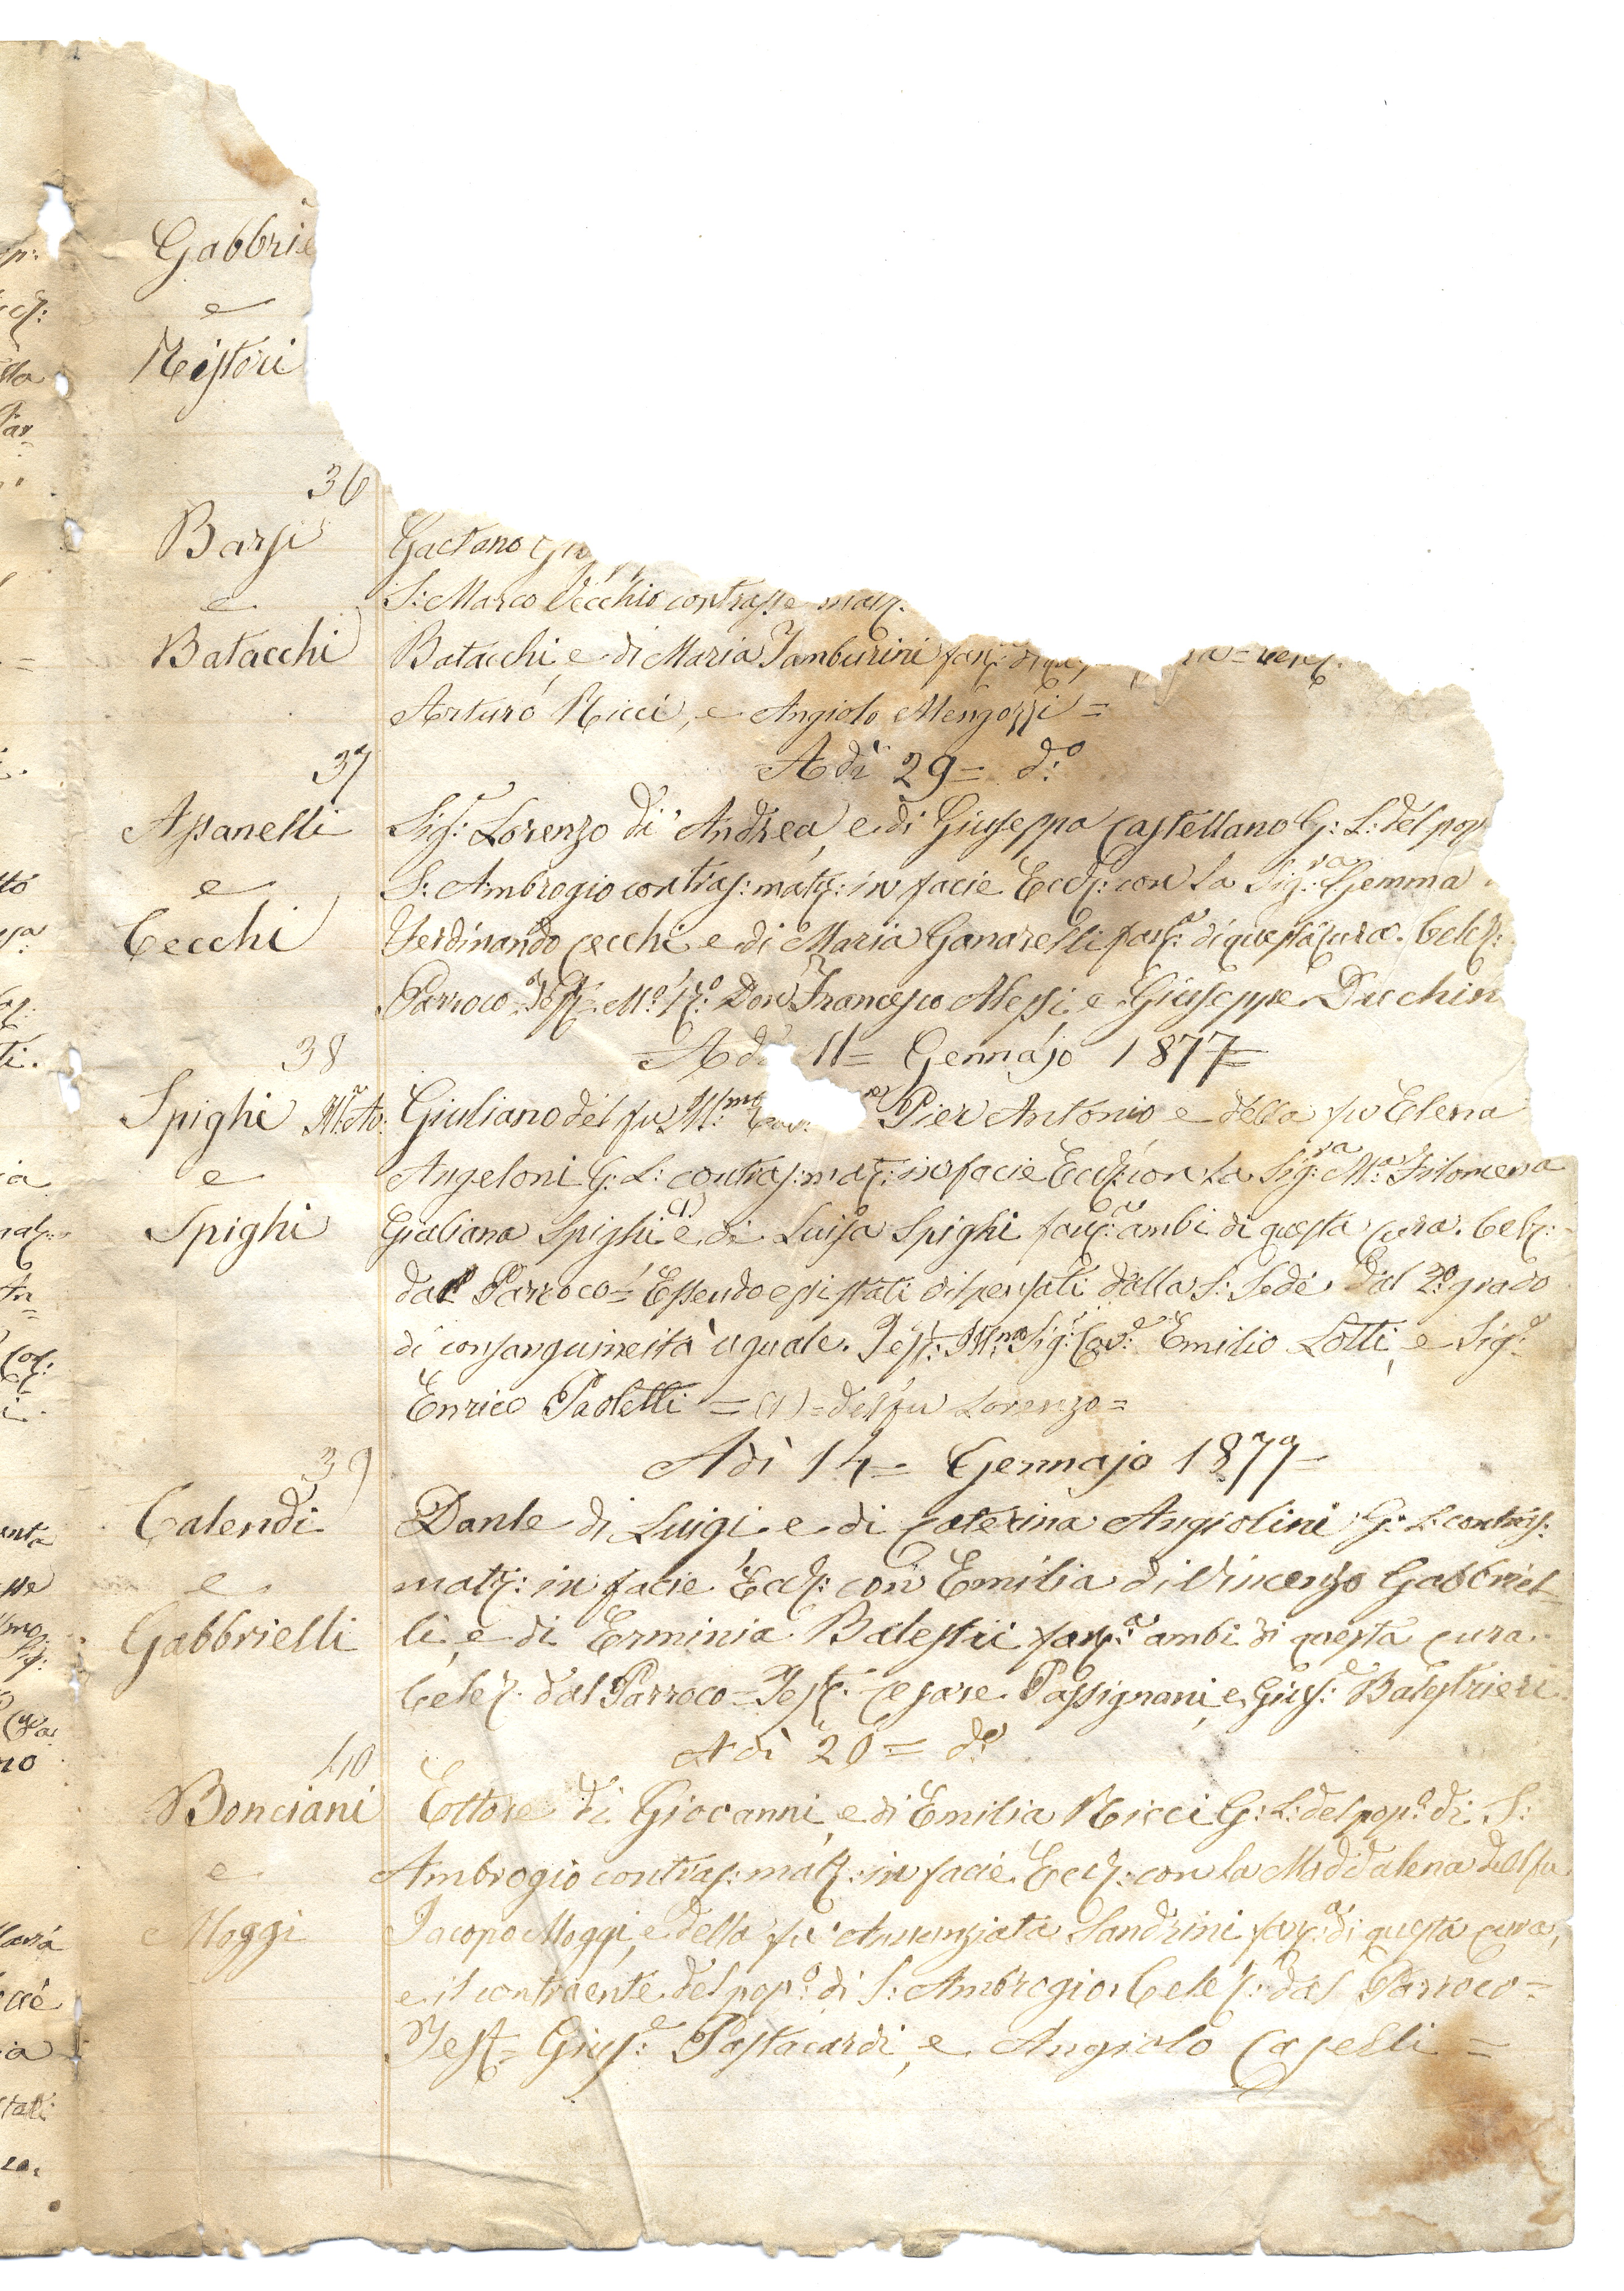 Gabbrie
e
Ristori
36
Barsi
e
Batacchi
Gaetano
S: Marco Vecchio contrasse matr.
Batacchi, e di Maria Tamburini
Arturo Ricci, e Angiolo Mengozzi =
Adì 29 = d:o
37
Assanelli
e
Cecchi
Sig:r Lorenzo di Andrea, e di Giuseppa Castellano G: L: del pop
S: Ambrogio contras: matr: in facie Eccl: con la Sig:ra Gemma
Ferdinando Cecchi e di Maria Ganarelli fanc:a di questa cura. Celeb:
Parroco = Test = M:o R:o Don Francesco Alessi, e Giuseppe Ducchin
Adì 11 = Gennajo 1877 =
38
Spighi
e
Spighi
Giuliano del fu Ill:mo Pier Antonio e della fu Elena
Angeloni G: L: contras: mat: in facie Eccl: con la Sig:ra M:a Filomena
Giuliana Spighi (1) e di Luisa Spighi fanc:a ambi di questa cura. Celeb:
dal Parroco = Essendo essi stati dispensati dalla S: Sede dal 2:o grado
di consanguineità uguale. Test: Ill:mo Sig:r Cav:e Emilio Lotti, e Sig:r
Enrico Paoletti = (1) = del fu Lorenzo =
Adì 14 = Gennajo 1877 =
39
Calendi
e
Gabbrielli
Dante di Luigi, e di Caterina Angiolini G: L: contras:
matr: in facie Eccl: con Emilia di Vincenzo Gabbriel-
li, e di Erminia Balestri fanc:a ambi di questa cura.
Celeb. dal Parroco = Test: Cesare Passignani, e Gius:e Balestrieri
Adì 20 = d:o
40
Bonciani
e
Moggi
Ettore di Giovanni, e di Emilia Ricci G: L: del pop:o di S:
Ambrogio contras: matr: in facie Eccl: con la Maddalena del fu
Jacopo Moggi, e della fu Annunziata Sandrini fanc:a di questa cura,
e il contraente del pop:o di S: Ambrogio. Celeb: dal Parroco =
Test = Gius:e Pastacardi, e Angiolo Caselli =